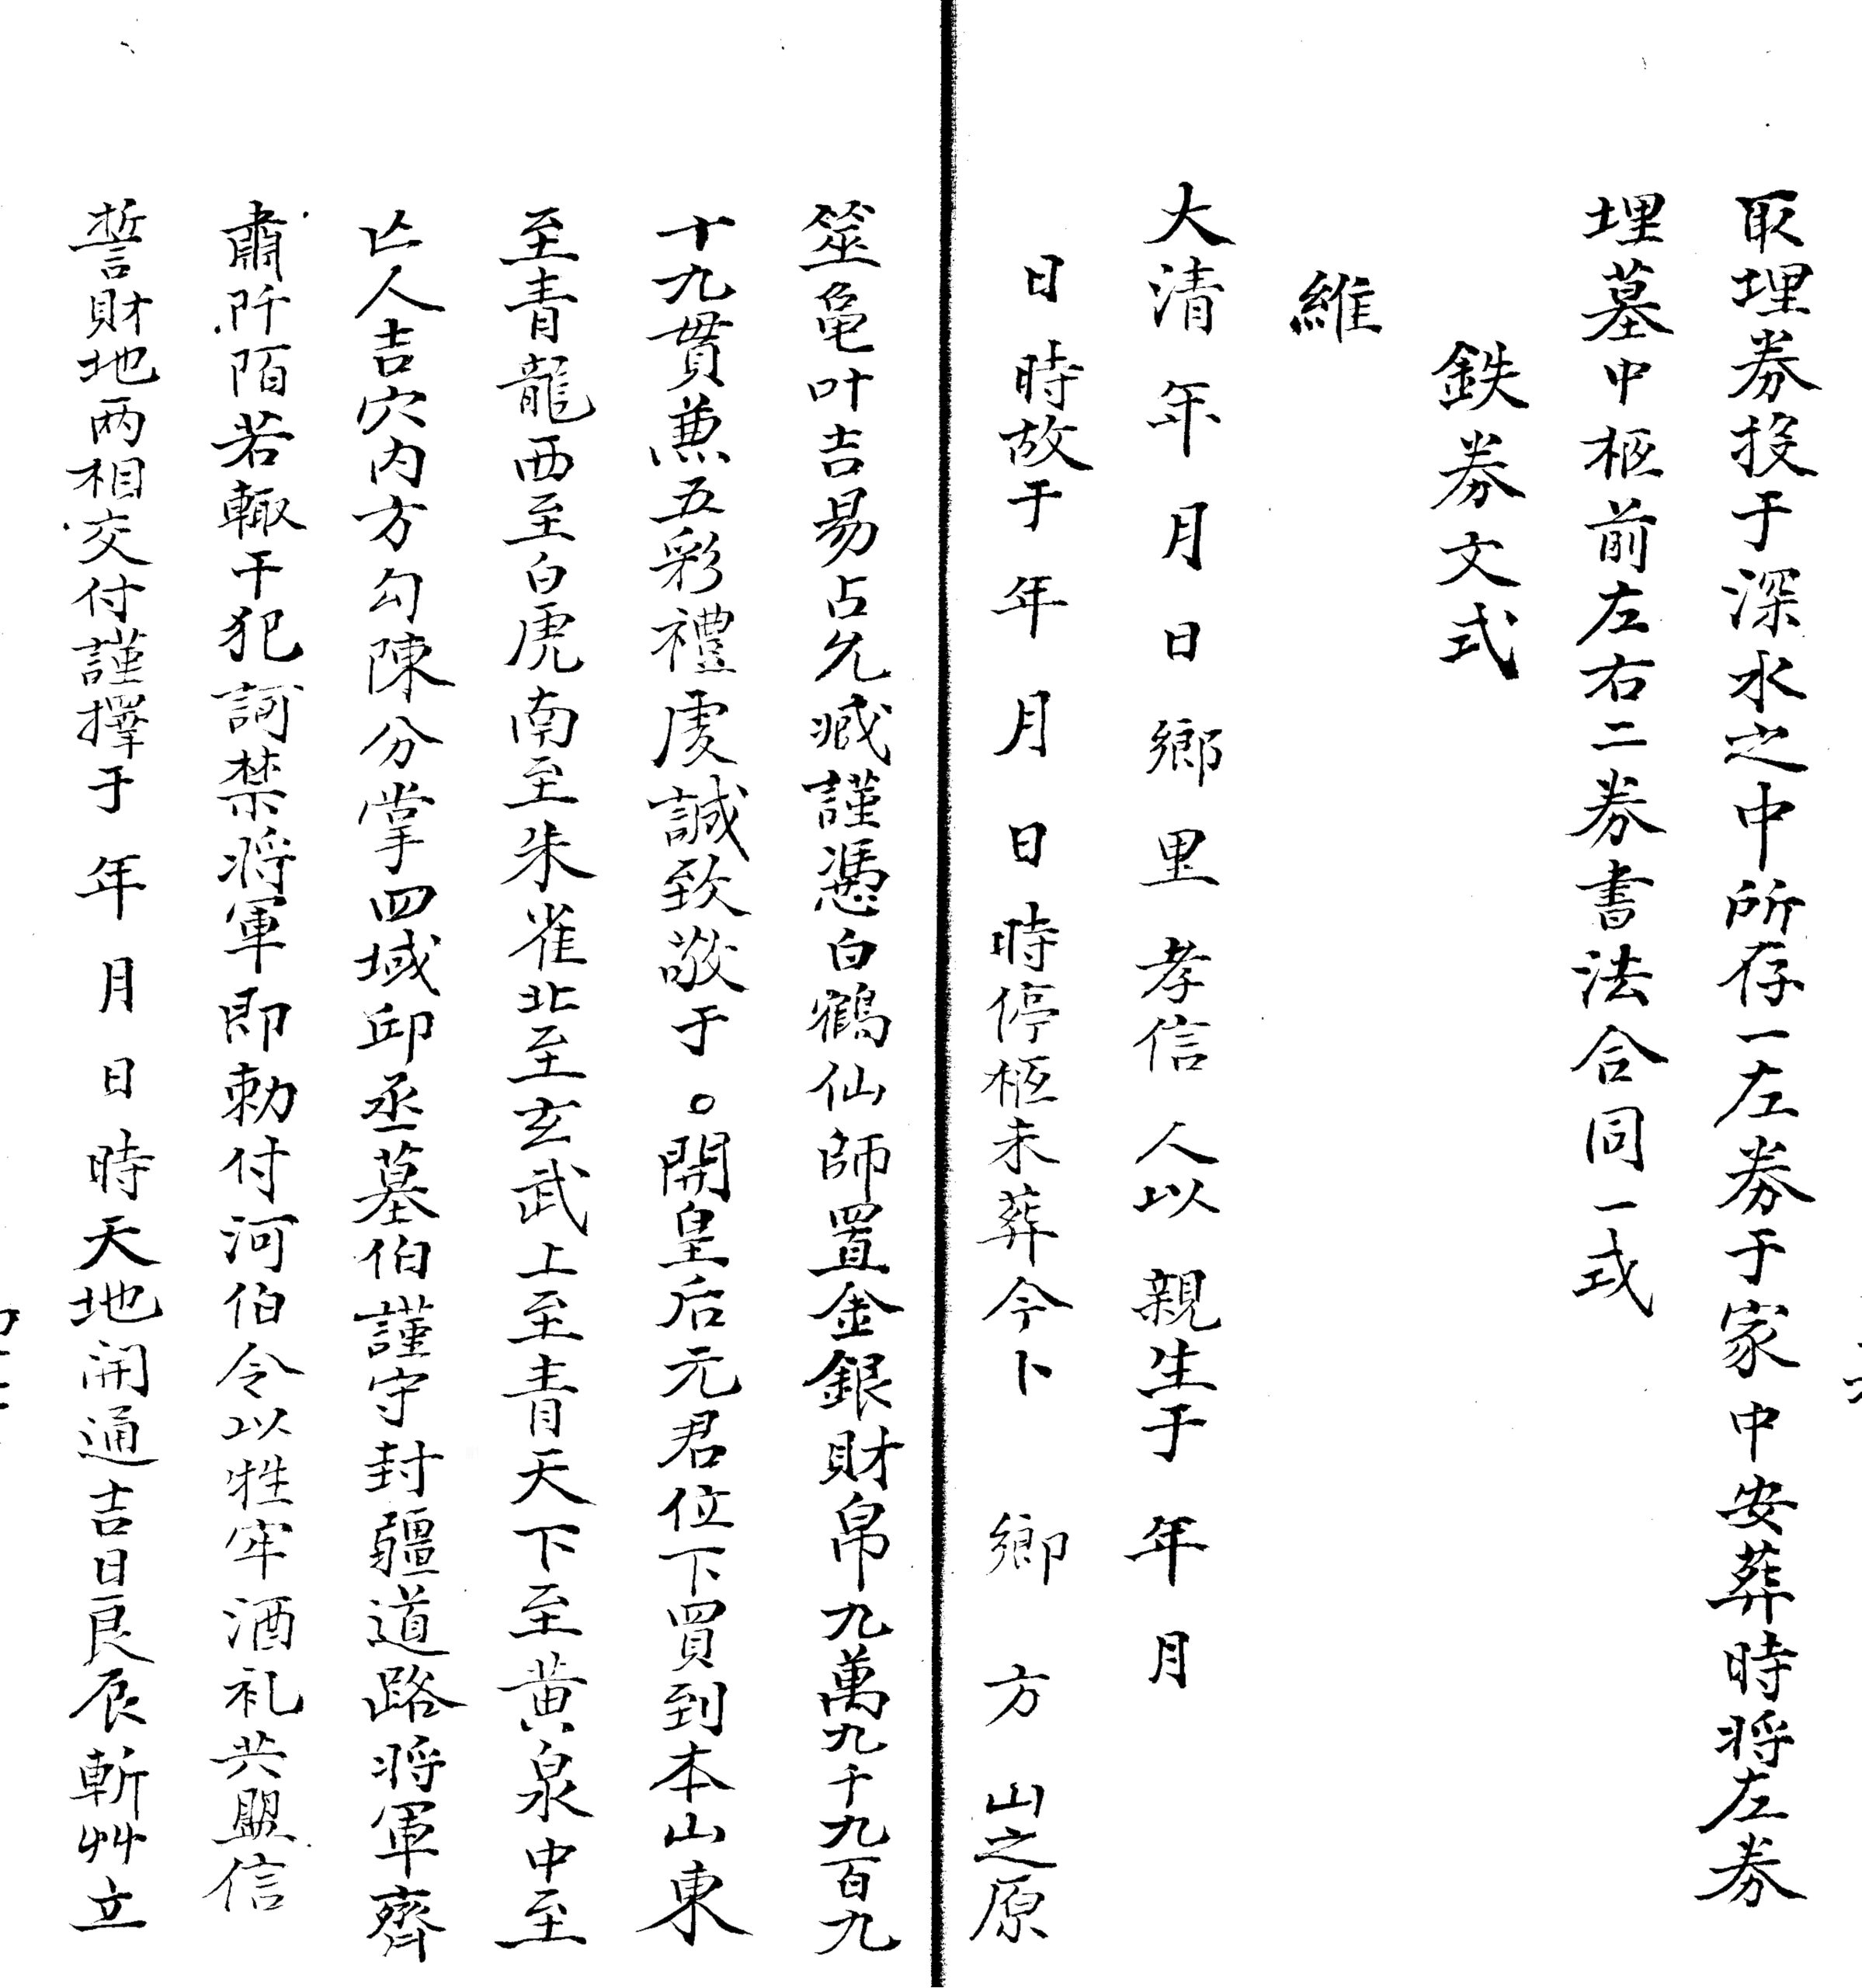 取埋券投于深水之中所存一左券于家中安葬時将左券
埋墓中柩前左右二券書法合同一式
鉄券文式
維
大清年月日鄉里孝信人以親生于年月
日時故于年月日時停柩未葬今卜鄉方山之原
筮龟叶吉易占允臧謹憑白鶴仙師置金銀財帛九萬九千九百九
十九貫兼五彩禮虔誠致敬于○開皇后元君位下買到本山東
至青龍西至白虎南至朱雀北至玄武上至青天下至黄泉中至
亡人吉穴内方勾陳分掌四域邱丞墓伯謹守封疆道路将軍齊
肅阡陌若輙干犯訶禁将軍即勅付河伯令以牲牢酒礼共盟信
誓財地两相交付謹擇于年月日時天地開通吉日良辰斬艸立